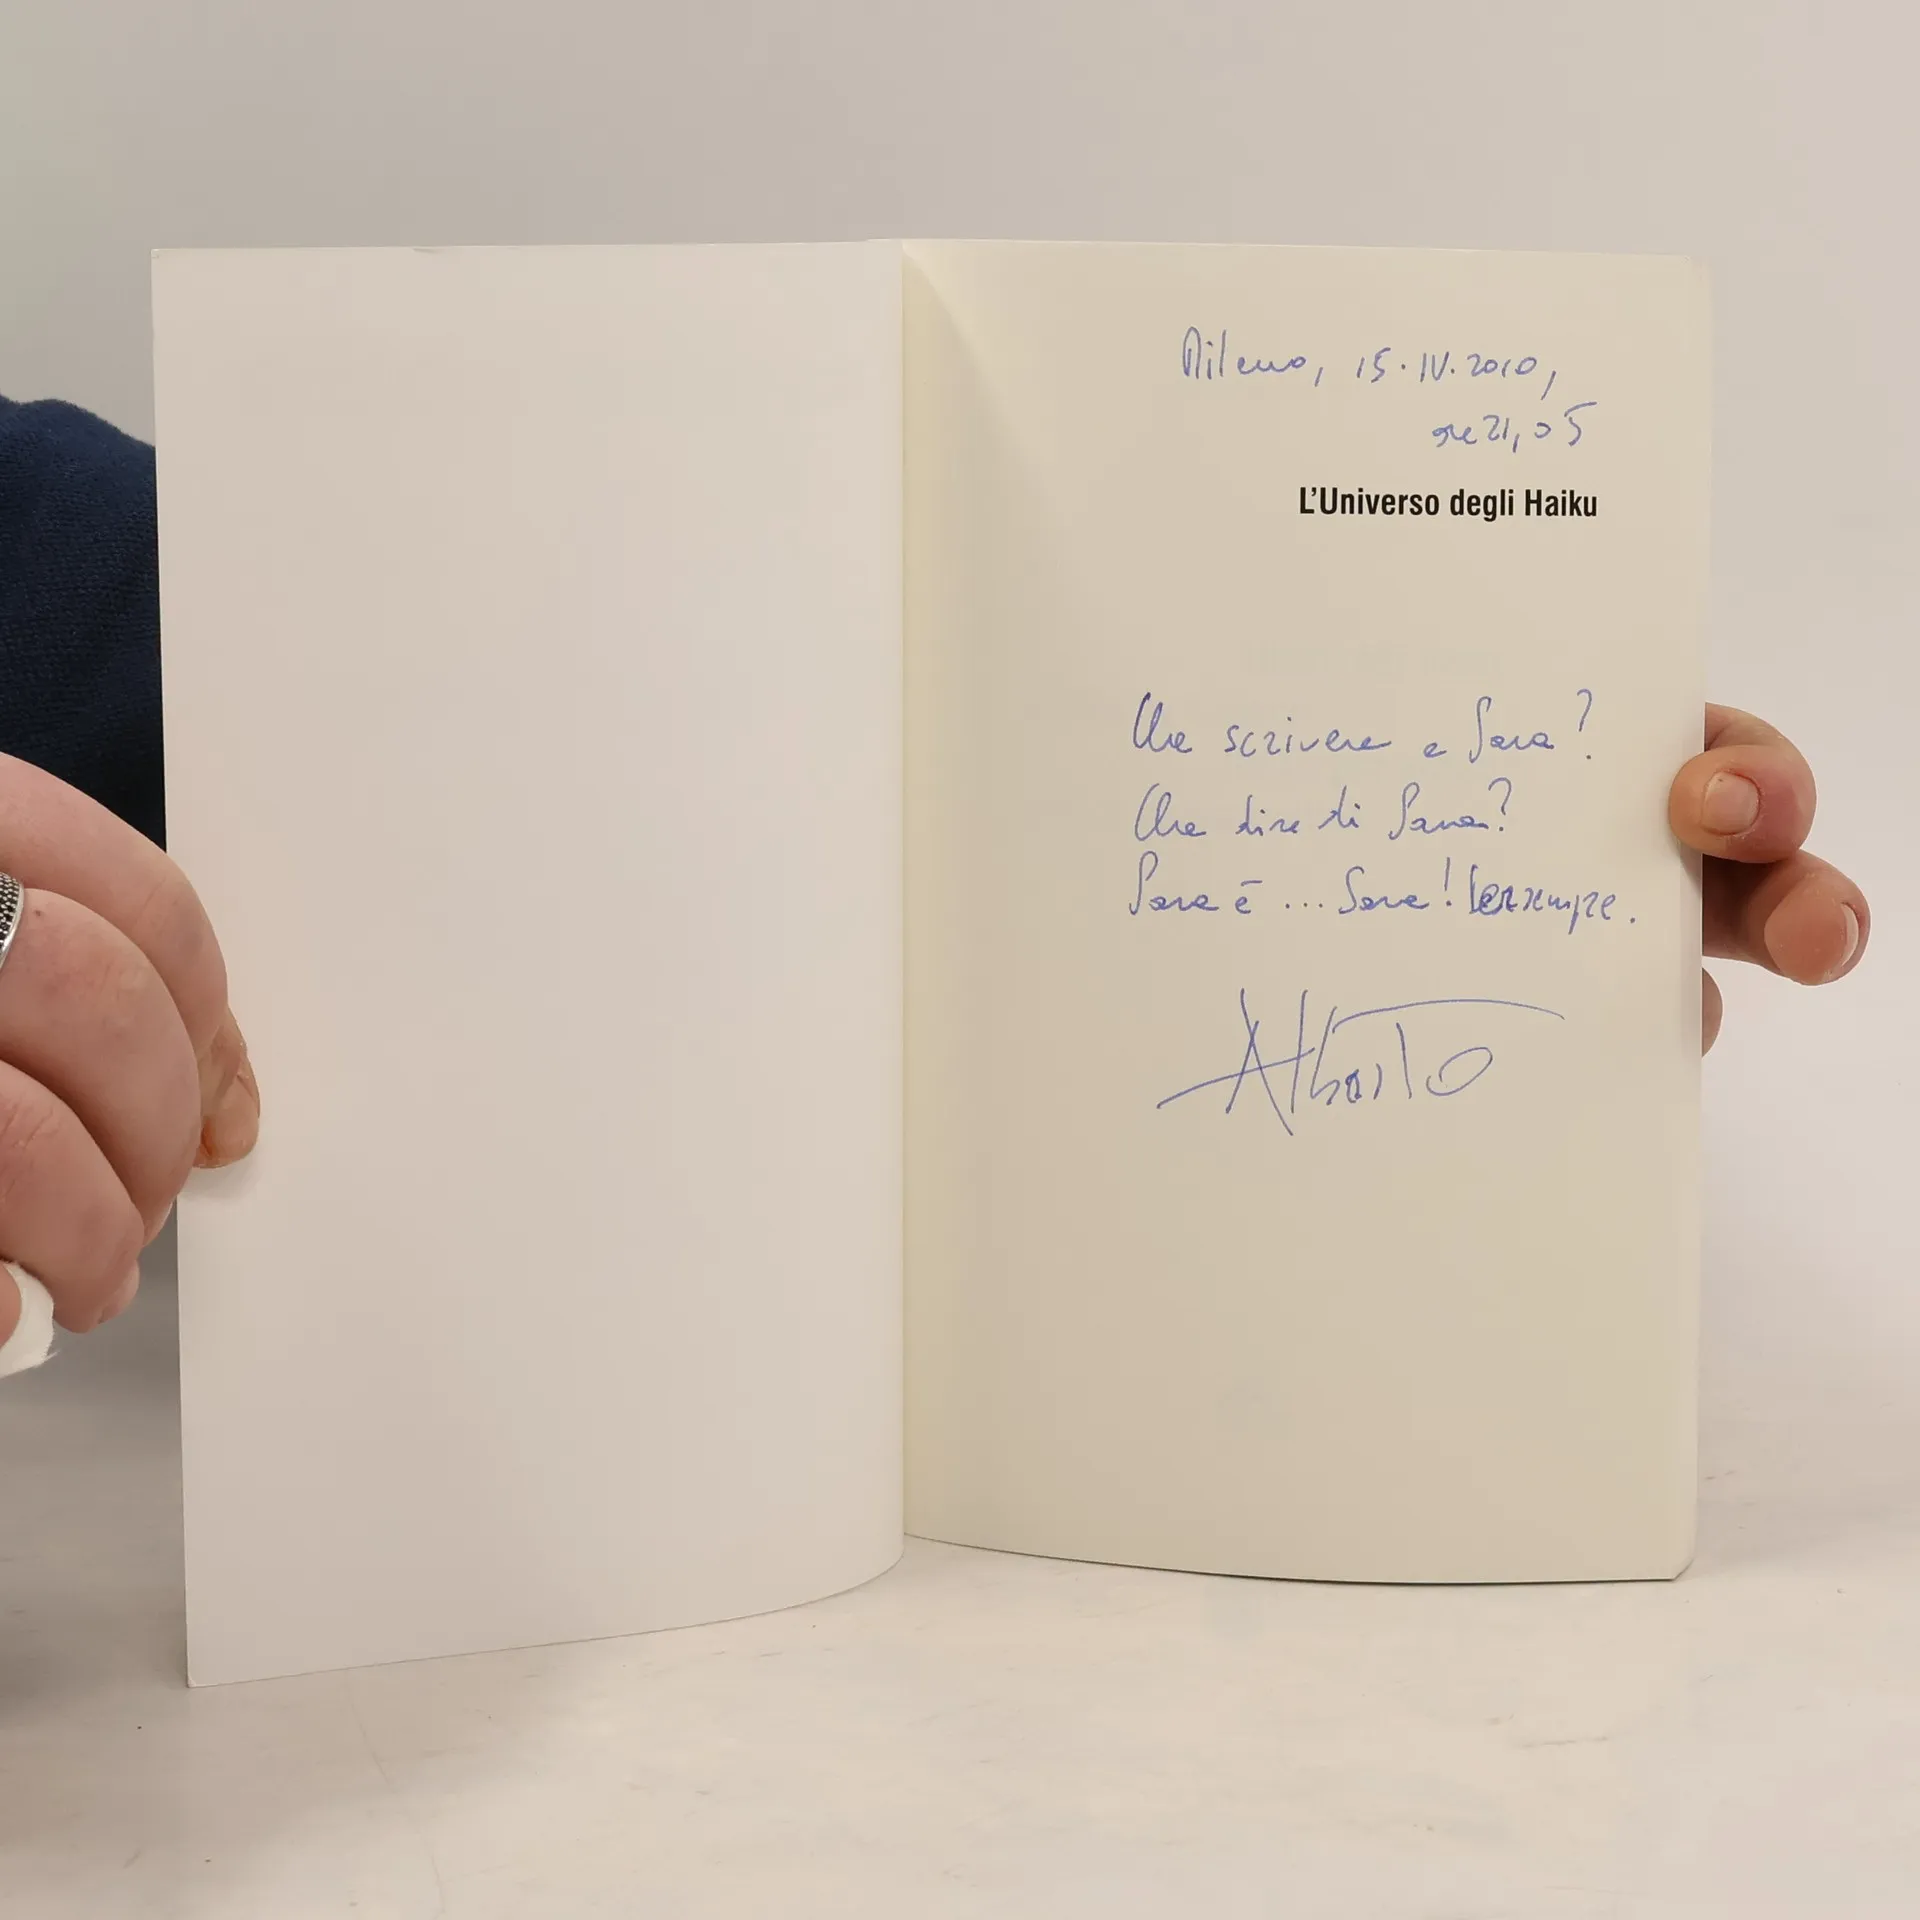 Milano, 15.IV.2010,
ore 21,05
L'Universo degli Haiku
Che scrivere a Sara?
Che dire di Sara?
Sara è ... Sara! Per sempre.
Alberto